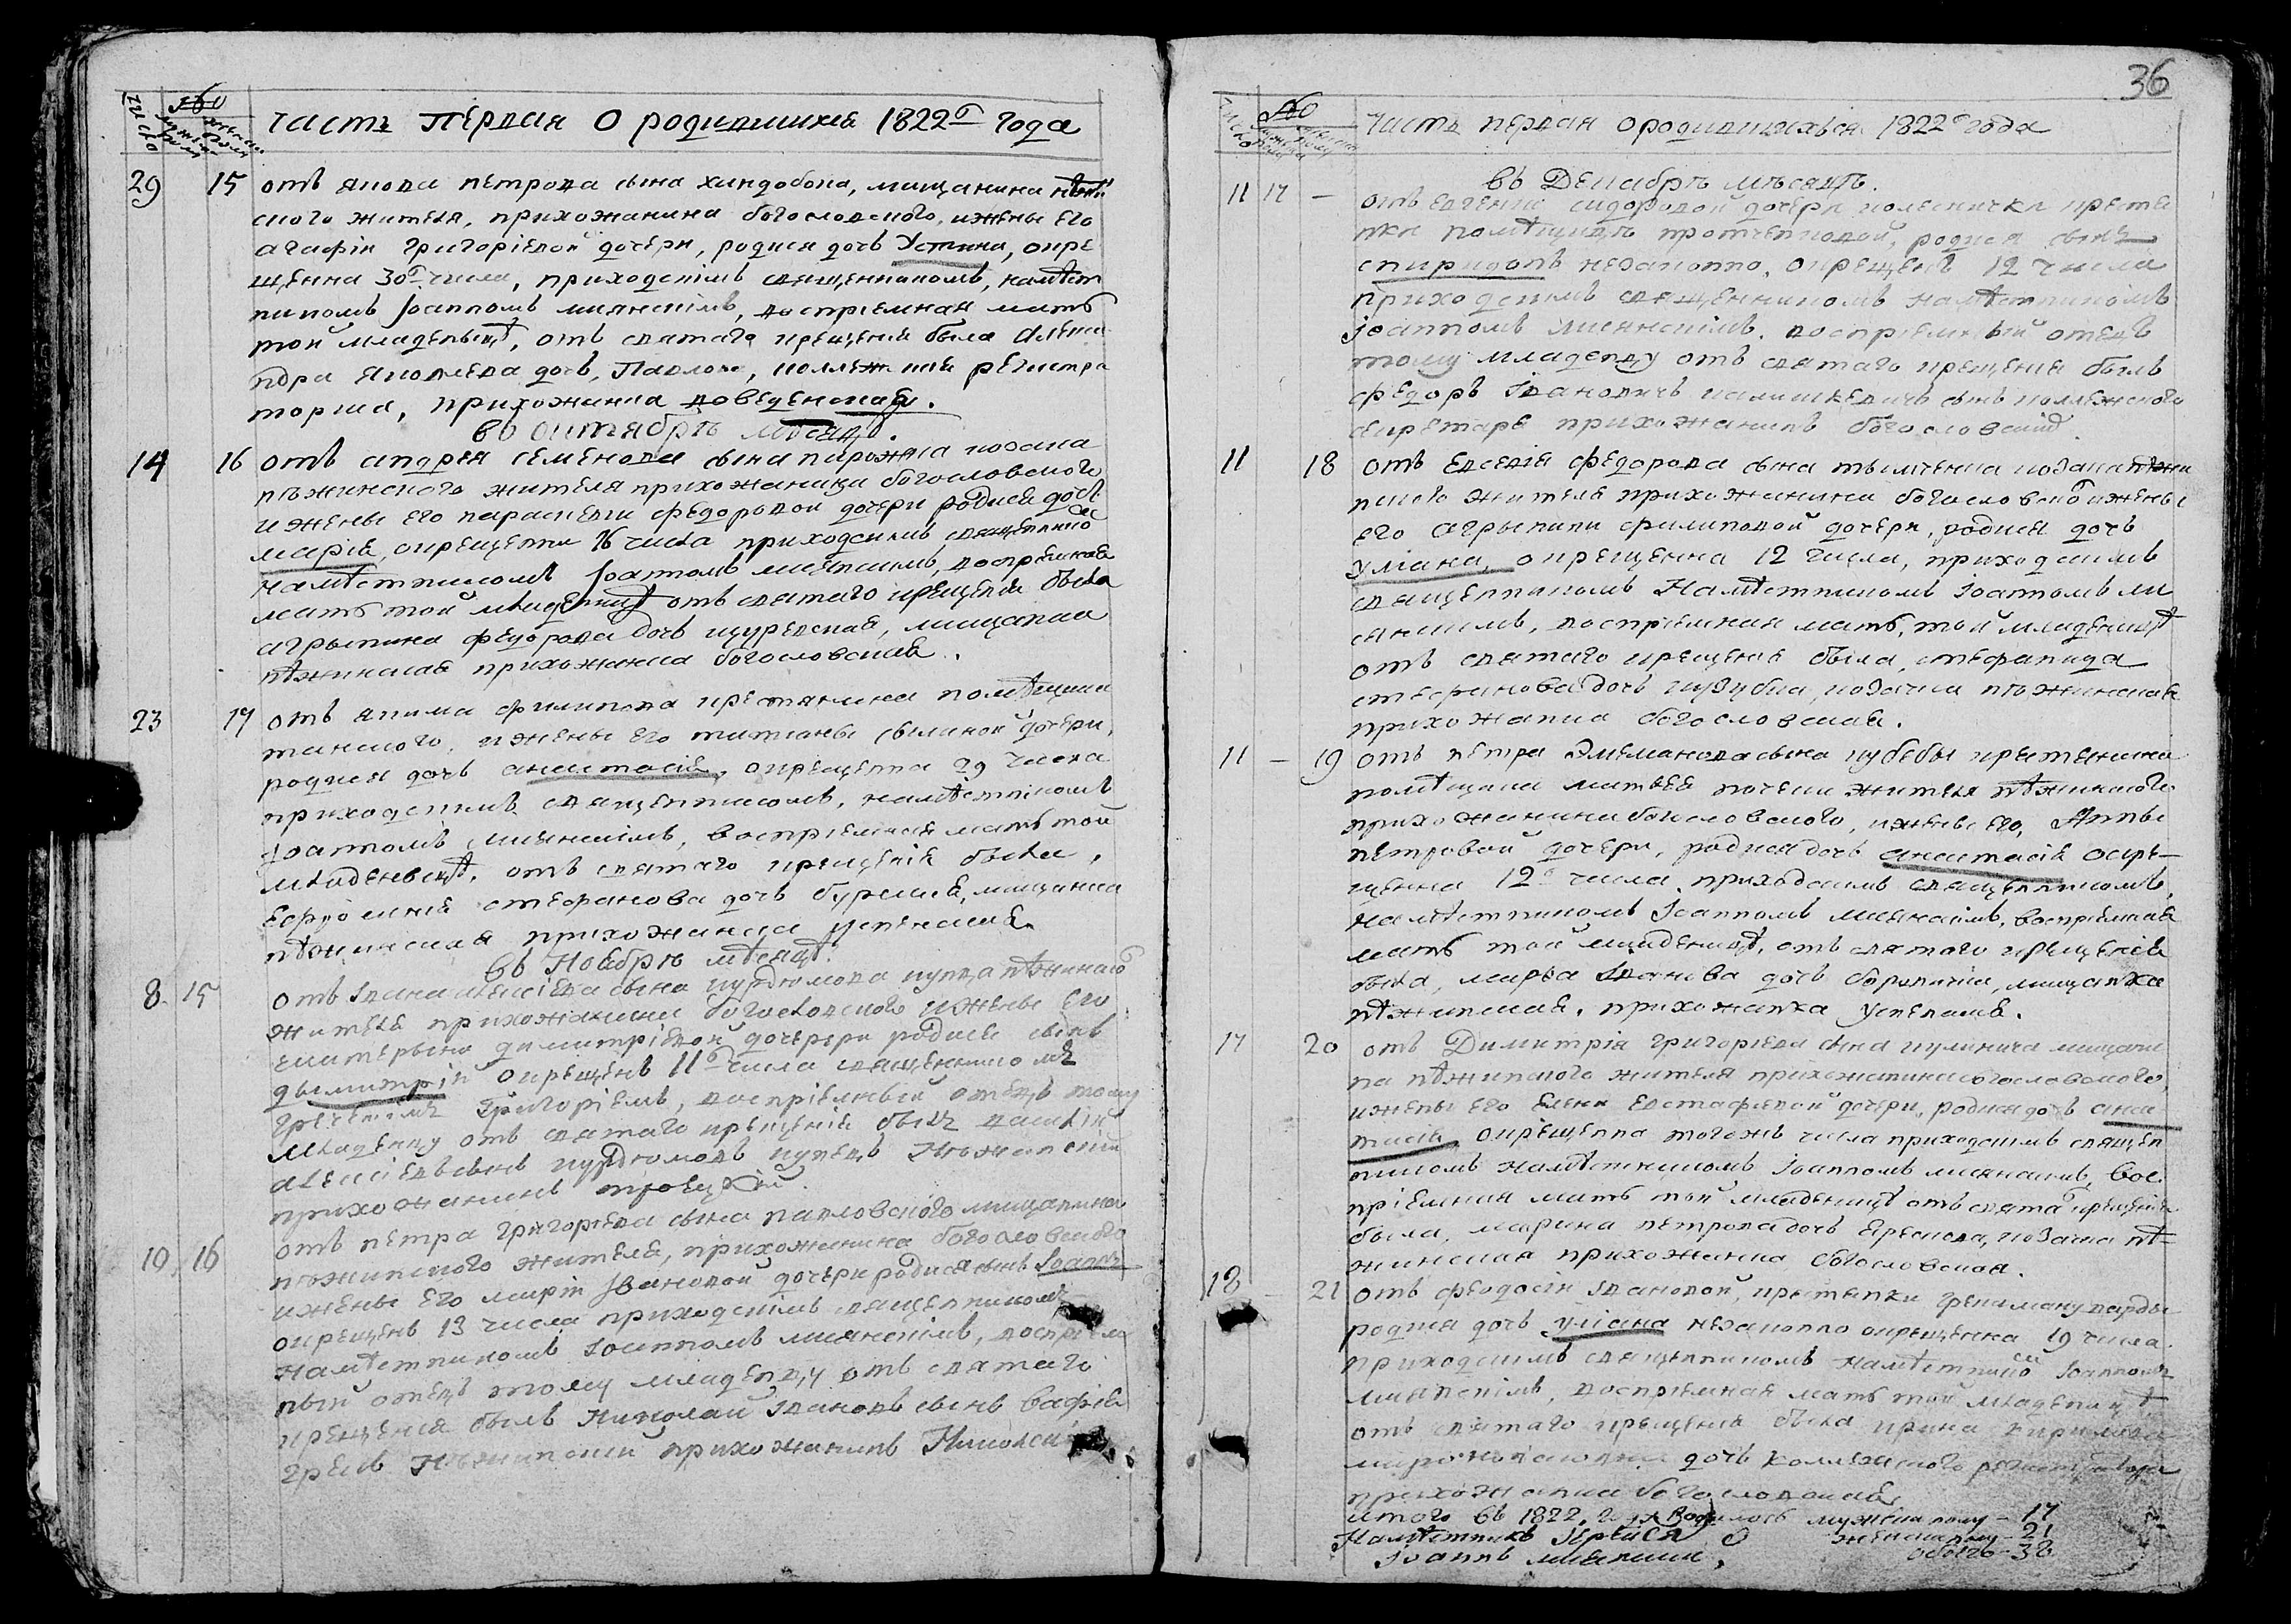 число
мужеска пола
женска пола
часть первая о родившихся 1822го года
29 15 отъ якова петрова сына хиндобока, мищанина нѣжин
ского жителя, прихожанина богословского, ижены его
агафiи григорiевой дочери, родися дочь Устина, окре
щенна 30го числа, приходскiмъ священникомъ, намѣст
никомъ Iоанномъ миянскiмъ, воспрiемная мать
той младеницѣ, отъ святаго крещенiя была Алекса
ндра яковлева дочь, Павлова, коллежская регистра
торша, прихожанка введенская.
въ октябрѣ месяцѣ.
14 16 отъ андрея семенова сына пирожка козака
нѣжинского жителя прихожанина богословского
и жены его параскеви федоровой дочери родися дочь
марiя, окрещенна 16 числа приходскимъ священнико
намѣстникомъ Iоанномъ миянскимъ, воспрiемная
мать той младеницѣ отъ святаго крещенiя была
агрыпина федорова дочь щуревская, мищанка
нѣжинская прихожанка богословская.
23 17 отъ якима филипова крестянина помѣщика
танского, ижены его титианы дочери,
родися дочь анастасiя, окрещенна 29 числа
приходскiмъ священникомъ, намѣстнiкомъ
Iоанномъ миянскiмъ, воспрiемная мать той
младеницѣ, отъ святаго крещенiя была,
ефросинiя стефанова дочь бурская, мищанка
нѣжинская прихожанка успенская.
въ Ноябрѣ мѣсяцѣ.
8 15 отъ Iвана алексiева сына курдюмова купца нѣжинско
жителя прихожанина богословского ижены его
екатерыны димитрiевой дочери родися сынъ
дымитрiй окрещенъ 11го числа священникомъ
греческiмъ григорiемъ, воспрiемный отецъ тому
младенцу отъ святаго крещенiя былъ
алексiевъ сынъ курдюмовъ купецъ Нѣжинскiй
прихожанинъ троецкiй.
10 16 отъ петра григорiева сына павловского мищанина
нѣжинского жителя, прихожанина богословского
ижены его марiи Iвановой дочери родися сынъ Iоаннъ
окрещенъ 13 числа приходскiмъ священникомъ
намѣстникомъ Iоанномъ миянскiмъ, воспрiем
ный отецъ тому младенцу отъ святаго
крещенiя былъ Николай Iвановъ сынъ
грекъ Нѣжинскiй прихожанинъ
36
число
часть первая о родившихъся 1822го года
въ Декабрѣ мѣсяцѣ.
11 17 - отъ евгенiи сидоровой дочери крестя
нки помѣщицы родися сынъ
спиридонъ незаконно, окрещенъ 12 числа
приходскимъ священникомъ намѣстникомъ
Iоанномъ миянскiмъ, воспрiемный отецъ
тому младенцу отъ святаго крещенiя былъ
федоръ Iвановичъ сынъ коллежского
секретаря прихожанинъ богословскiй.
11 18 отъ евсевiя федорова сына козака нѣжи
нского жителя прихожанина богословско ижены
его агрыпини филиповой дочери, родися дочь
улiана, окрещенна 12 числа, приходскимъ
священникомъ Намѣстникомъ Iоанномъ ми
янскимъ, воспрiемная мать, той младеницѣ
отъ святаго крещенiя была, стефанида
стефанова дочь козачка нѣжинская
прихожанка богословская.
11 - 19 отъ петра сына кубебы крестянина
помѣщика матвея жителя нѣжинского
прихожанина богословского, ижены его, Анны
петровой дочери, родися дочь анастасiя окре-
щенна 12го числа, приходскимъ священникомъ,
намѣстникомъ Iоанномъ миянскiмъ, воспрiемная
мать той младеницѣ, отъ святаго крещенiя
была, марфа Iванова дочь мищанка
нѣжинская, прихожанка успенская.
17 20 отъ Димитрiя григорiева сына кулинича мищани
на нѣжинского жителя прихожанина богословского,
ижены его елены евстафiевой дочери, родися дочь анас
тасiя, окрещенна тогожъ числа приходскимъ священ
никомъ намѣстникомъ Iоанномъ миянскимъ, вос
прiемная мать той младеницѣ отъ свята крещенiя
была, марина петрова дочь козачка нѣ-
жинская прихожанка богословская.
18 - 21 отъ феодосiи Iвановой, крестянки
родися дочь улiана незаконно окрещенна 19 числа.
приходскимъ священникомъ намѣстнико Iоанномъ
миянскiмъ, воспрiемная мать той младеницѣ
отъ святаго крещенiя была ирина кирилова
дочь коллежского регистратора
прихожанка богословская
итого въ 1822. году родилось мужеска полу - 17
Намѣстникъ Iерей женска полу - 21
Iоаннъ миянскiй, обоего - 38